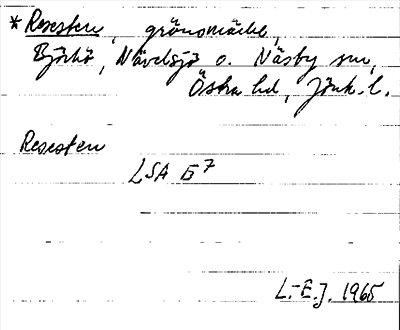 *Resesten, gränsmärke,
Björkö, Nävelsjö o. Näsby snr,
Östra hd, Jönk. l.
Resesten
LSA E7
L.-E.J. 1965